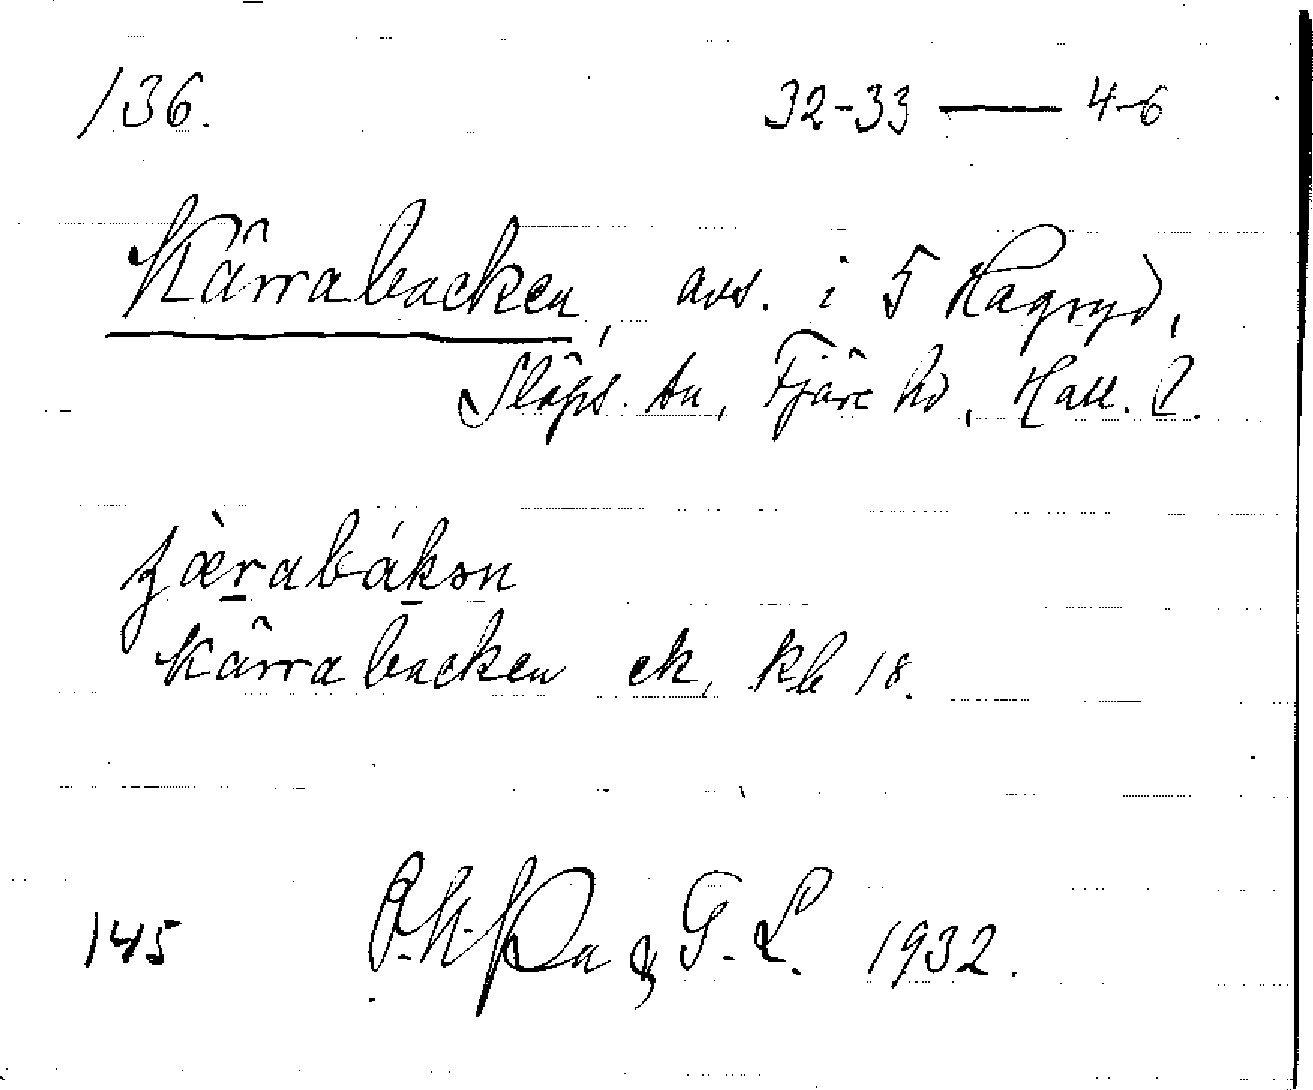 136. 32-33 — 4-6
Kärrabacken, avs. i 5 Hagryd,
Släps. sn, Fjäre hd, Hall. l.
Kärrabacken ek, kb 18.
145 & G. L. 1932.